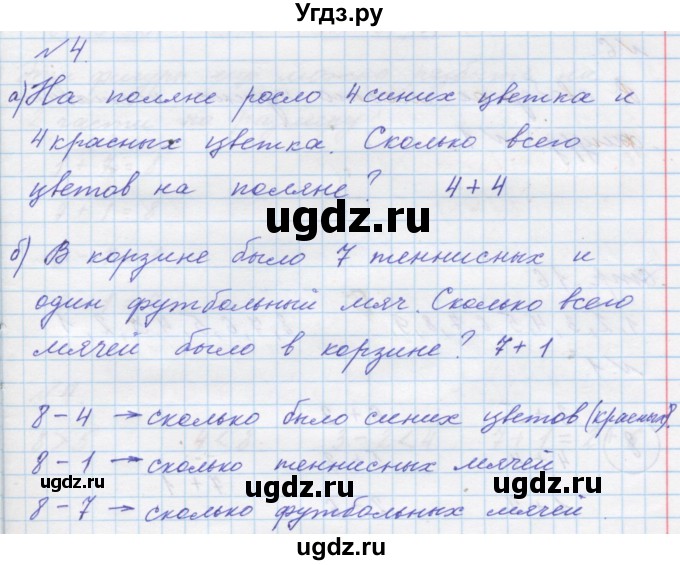 Угдз.ру
№4.
а) На поляне росло 4 синих цветка и
4 красных цветка. Сколько всего
цветов на поляне? 4+4
ugdz.ru
ugdz.ru
б) В корзине было 7 теннисных и
один футбольный мяч. Сколько всего
мячей было в корзине? 7+1
ugdz.ru
8-4 → сколько было синих цветов (красных)?
8-1 → сколько теннисных мячей
ugdz.ru ugdz.ru ugdz.ru
8-7 → сколько футбольных мячей.
ugdz.ru